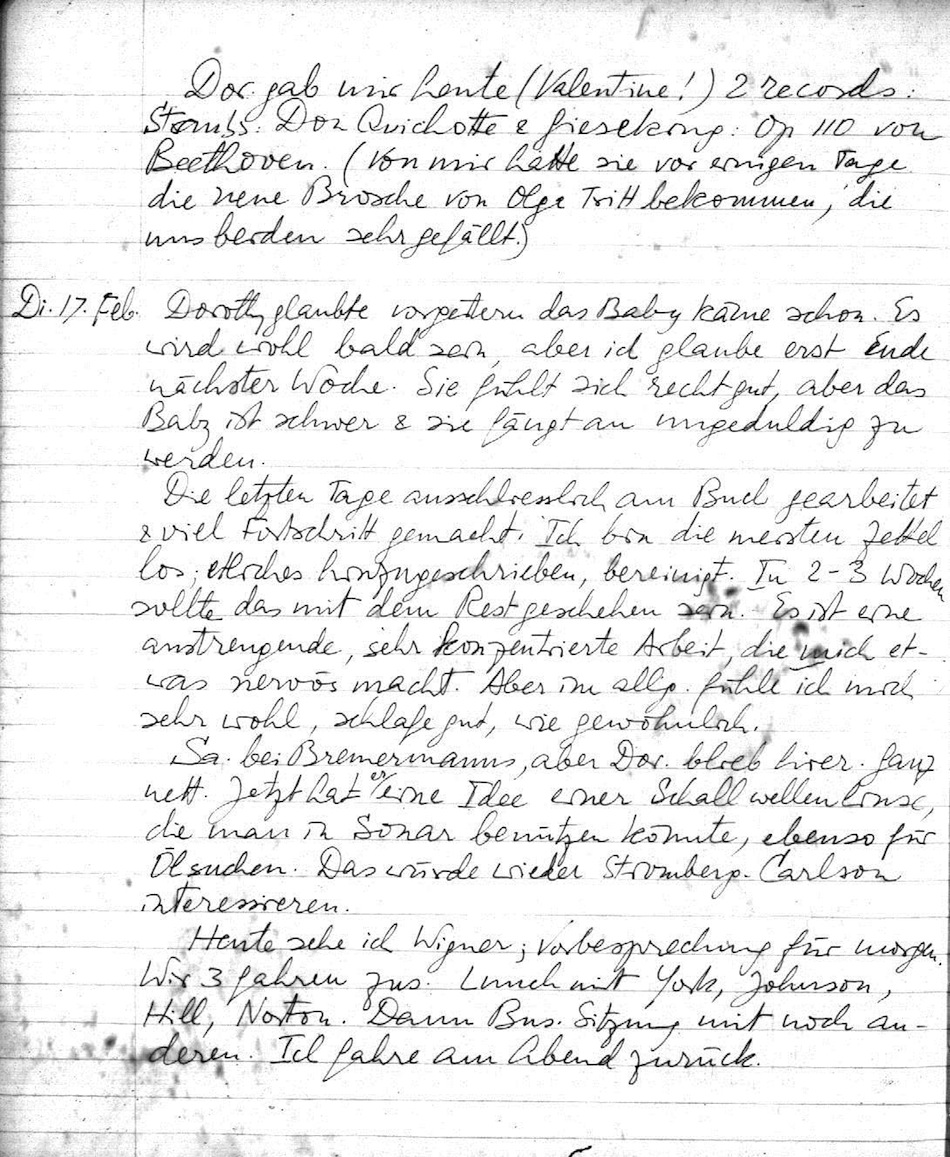 Dor. gab mir heute (Valentine!) 2 records:
Strauss: Don Quichotte & Gieseking: Op 110 von
Beethoven. (Von mir hatte sie vor einigen Tage
die neue Brosche von Olga Tritt bekommen, die
uns beiden sehr gefällt.)
Di. 17. Feb. Dorothy glaubte vorgestern das Baby käme schon. Es
wird wohl bald sein, aber ich glaube erst Ende
nächster Woche. Sie fühlt sich recht gut, aber das
Baby ist schwer & sie fängt an ungeduldig zu
werden.
Die letzten Tage ausschliesslich am Buch gearbeitet
& viel Fortschritt gemacht. Ich bin die meisten Zettel
los; etliches hinzugeschrieben, bereinigt. In 2-3 Wochen
sollte das mit dem Rest geschehen sein. Es ist eine
anstrengende, sehr konzentrierte Arbeit, die mich et-
was nervös macht. Aber im allg. fühle ich mich
sehr wohl, schlafe gut, wie gewöhnlich.
Sa. bei Bremermanns, aber Dor. blieb hier. Ganz
nett. Jetzt hat er eine Idee einer Schallwellenlinse,
die man in Sonar benützen könnte, ebenso für
Ölsuchen. Das würde wieder Stromberg-Carlson
interessieren.
Heute sehe ich Wigner; Vorbesprechung für morgen.
Wir 3 fahren zus. Lunch mit York, Johnson,
Hill, Norton. Dann Bus. Sitzung mit noch an-
deren. Ich fahre am Abend zurück.